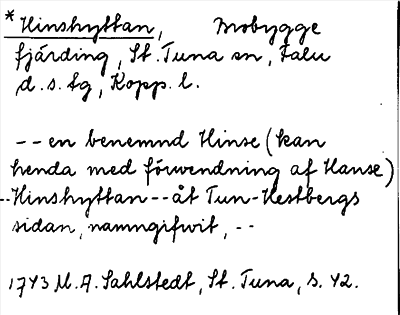 *Hinshyttan, Brobygge
fjärding, St. Tuna sn, Falu
d. s. tg, Kopp. l.
-- en benemnd Hinse (kan
henda med förwendning af Hanse)
-- Hinshyttan -- åt Tun-Hestbergs
sidan, namngifwit, --
1743 M. A. Sahlstedt, St. Tuna, s. 42.